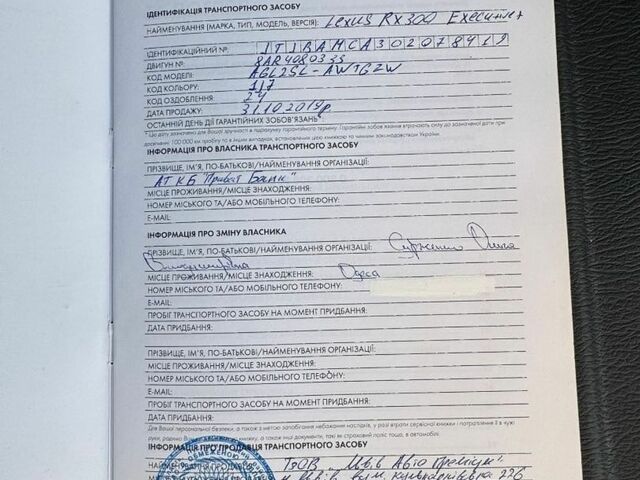 ІДЕНТИФІКАЦІЯ ТРАНСПОРТНОГО ЗАСОБУ
НАЙМЕНУВАННЯ (МАРКА, ТИП, МОДЕЛЬ, ВЕРСІЯ): Lexus RX300 Executive+
ІДЕНТИФІКАЦІЙНИЙ №
ДВИГУН №: 8AR4080335
КОД МОДЕЛІ: AGL25L-AWTGZW
КОД КОЛЬОРУ: 1J7
КОД ОЗДОБЛЕННЯ: 24
ДАТА ПРОДАЖУ: 31.10.2019р
ОСТАННІЙ ДЕНЬ ДІЇ ГАРАНТІЙНИХ ЗОБОВ'ЯЗАНЬ*:
* Цю дату зазначено для Вашої зручності в підрахунку гарантійного терміну. Гарантійні зобов'язання втрачають силу до зазначеної дати при
досягненні 100 000 км пробігу та в інших випадках, встановлених цією книжкою та чинним законодавством України.
ІНФОРМАЦІЯ ПРО ВЛАСНИКА ТРАНСПОРТНОГО ЗАСОБУ
ПРІЗВИЩЕ, ІМ'Я, ПО-БАТЬКОВІ/НАЙМЕНУВАННЯ ОРГАНІЗАЦІЇ:
АТ КБ "Приват Банк"
МІСЦЕ ПРОЖИВАННЯ/МІСЦЕ ЗНАХОДЖЕННЯ:
НОМЕР МІСЬКОГО ТА/АБО МОБІЛЬНОГО ТЕЛЕФОНУ:
E-MAIL:
ІНФОРМАЦІЯ ПРО ЗМІНУ ВЛАСНИКА
ПРІЗВИЩЕ, ІМ'Я, ПО-БАТЬКОВІ/НАЙМЕНУВАННЯ ОРГАНІЗАЦІЇ: Ольга
МІСЦЕ ПРОЖИВАННЯ/МІСЦЕ ЗНАХОДЖЕННЯ: Одеса
НОМЕР МІСЬКОГО ТА/АБО МОБІЛЬНОГО ТЕЛЕФОНУ:
E-MAIL:
ПРОБІГ ТРАНСПОРТНОГО ЗАСОБУ НА МОМЕНТ ПРИДБАННЯ:
ДАТА ПРИДБАННЯ:
ПРІЗВИЩЕ, ІМ'Я, ПО-БАТЬКОВІ/НАЙМЕНУВАННЯ ОРГАНІЗАЦІЇ:
МІСЦЕ ПРОЖИВАННЯ/МІСЦЕ ЗНАХОДЖЕННЯ:
НОМЕР МІСЬКОГО ТА/АБО МОБІЛЬНОГО ТЕЛЕФОНУ:
E-MAIL:
ПРОБІГ ТРАНСПОРТНОГО ЗАСОБУ НА МОМЕНТ ПРИДБАННЯ:
ДАТА ПРИДБАННЯ:
Для Вашої персональної безпеки, а також з метою запобігання небажаним наслідкам, у разі втрати сервісної книжки і потрапляння її в чужі
руки, радимо Вам сервісну книжку, а також інші документи, такі як страховий поліс тощо, в автомобілі.
ІНФОРМАЦІЯ ПРО ПРОДАВЦЯ ТРАНСПОРТНОГО ЗАСОБУ
НАЙМЕНУВАННЯ ТзОВ "Львів Авто Преміум"
226